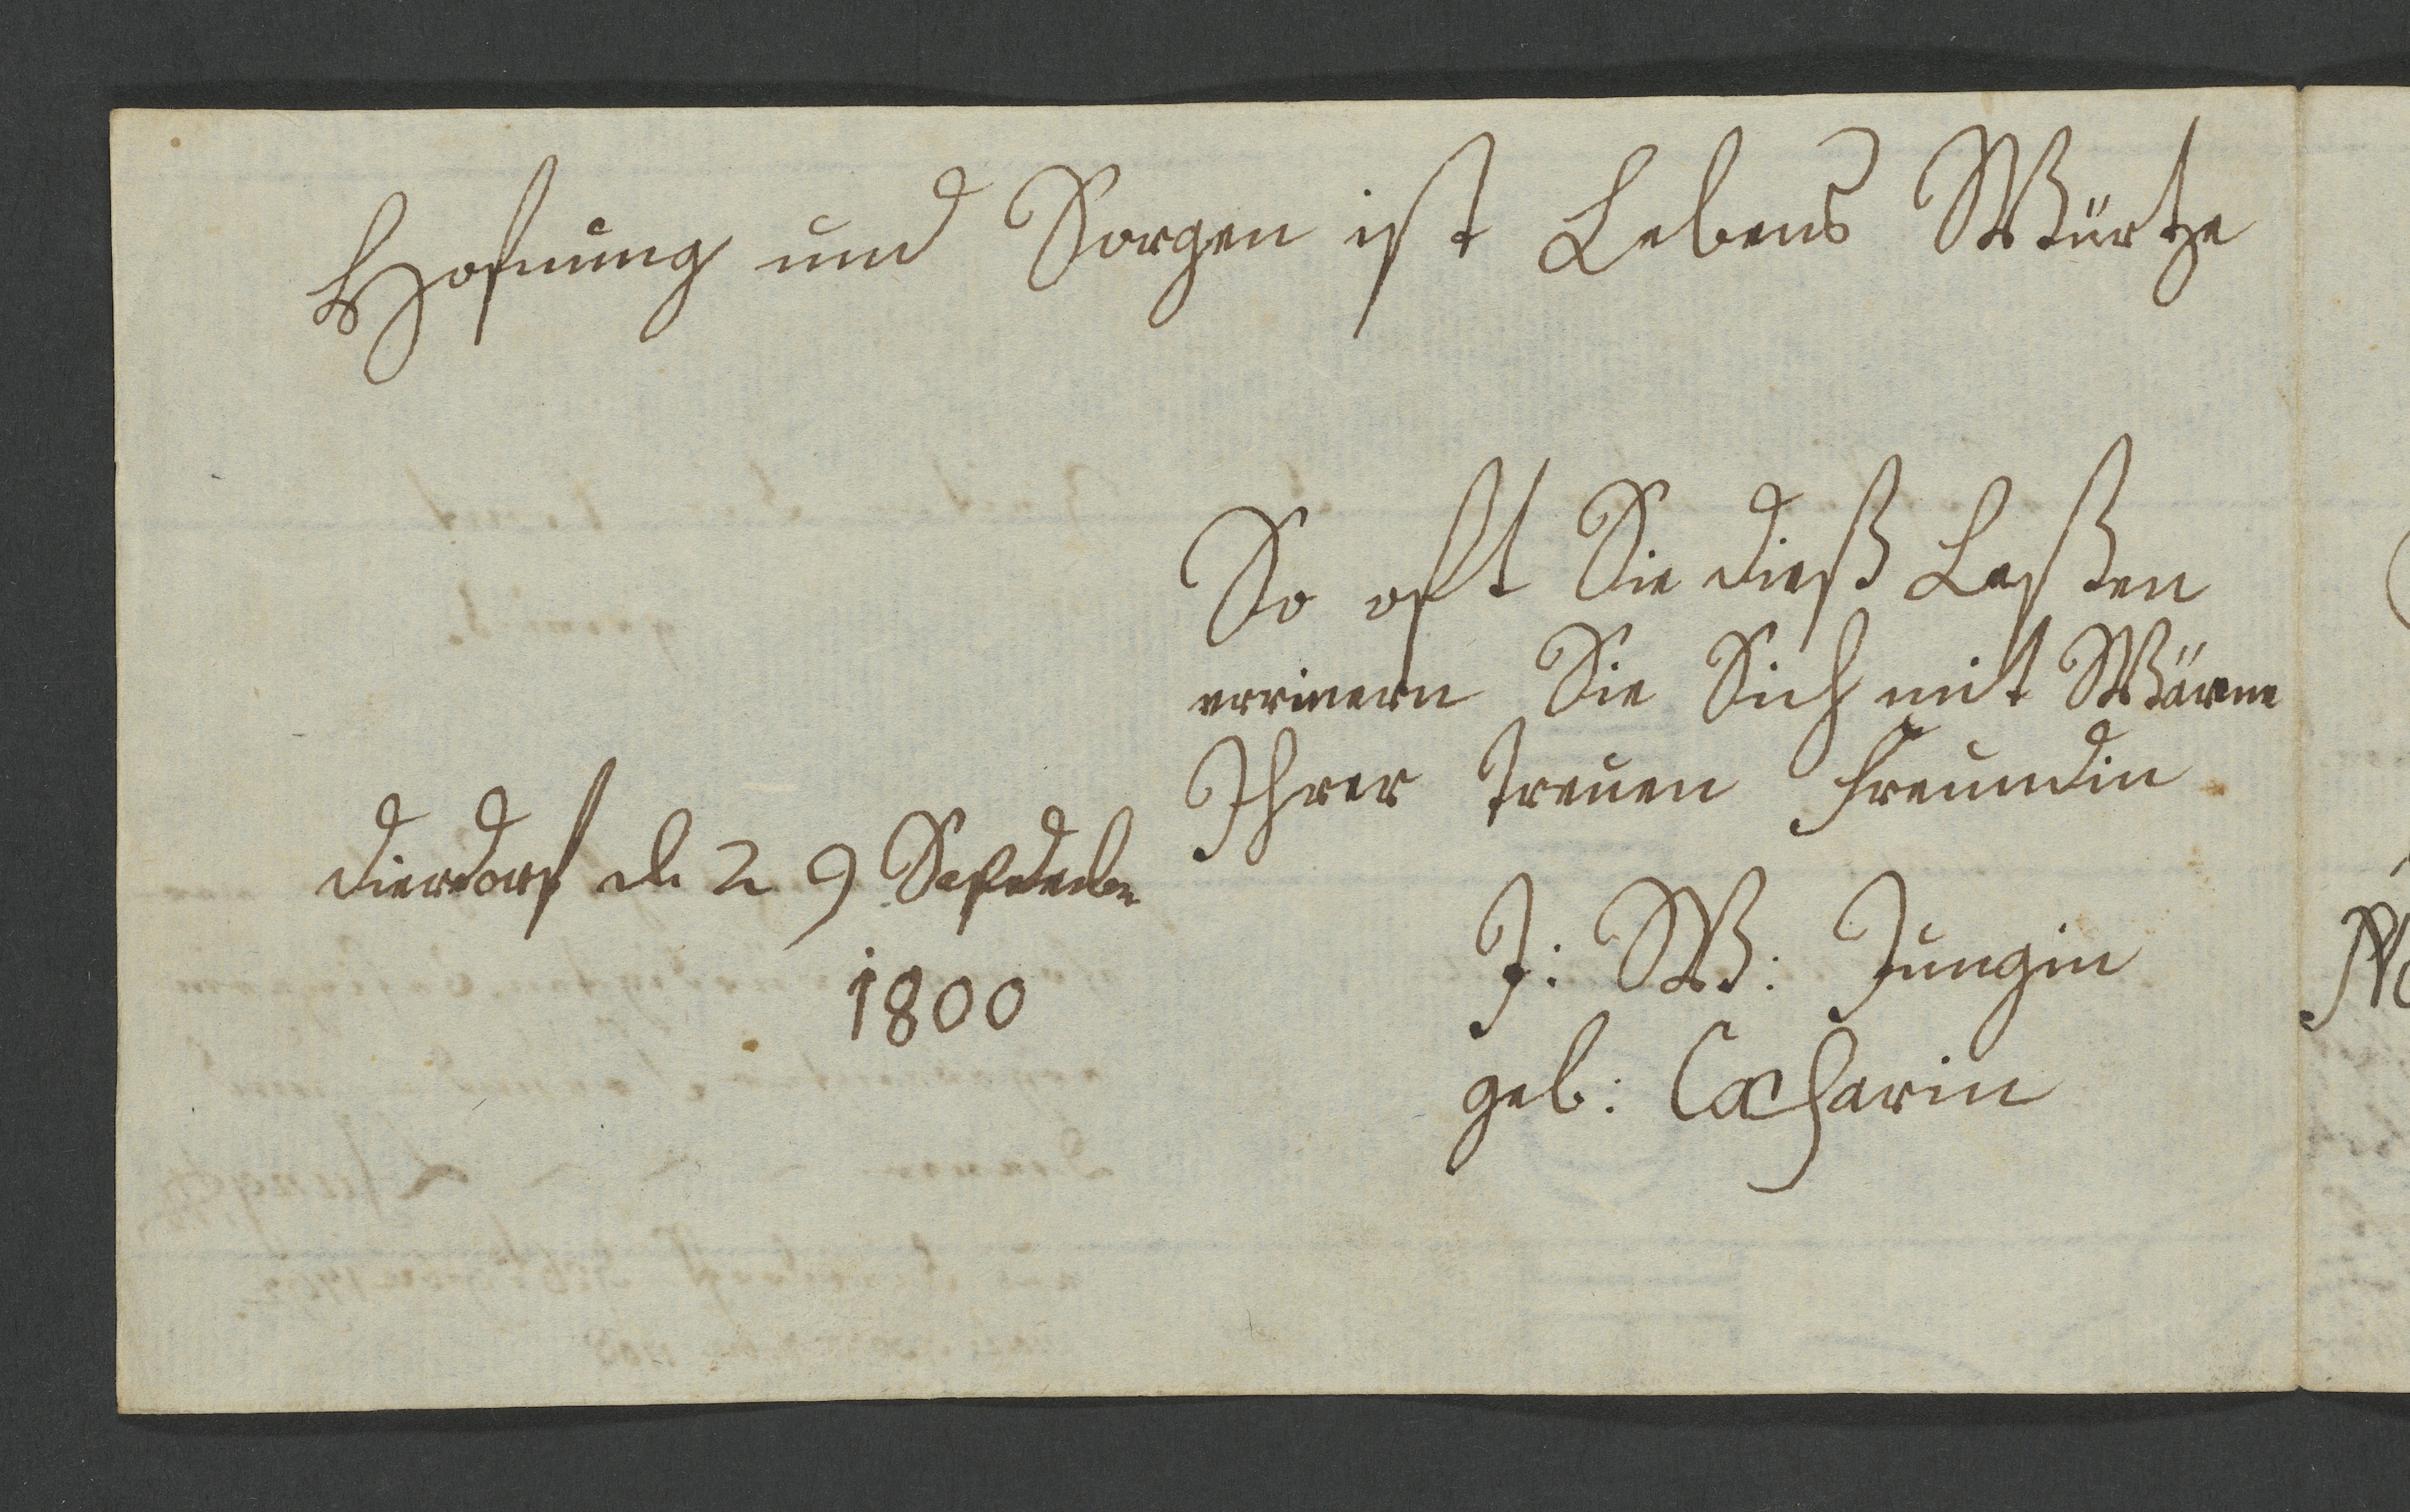 Hofnung und Sorgen ist Lebens Würtze
So oft Sie dieß Leßen
errinern Sie Sich mit Wärme
Ihrer treuen Freundin
Dierdorf d 29 Sepdember
1800
J: W: Jungin
geb: